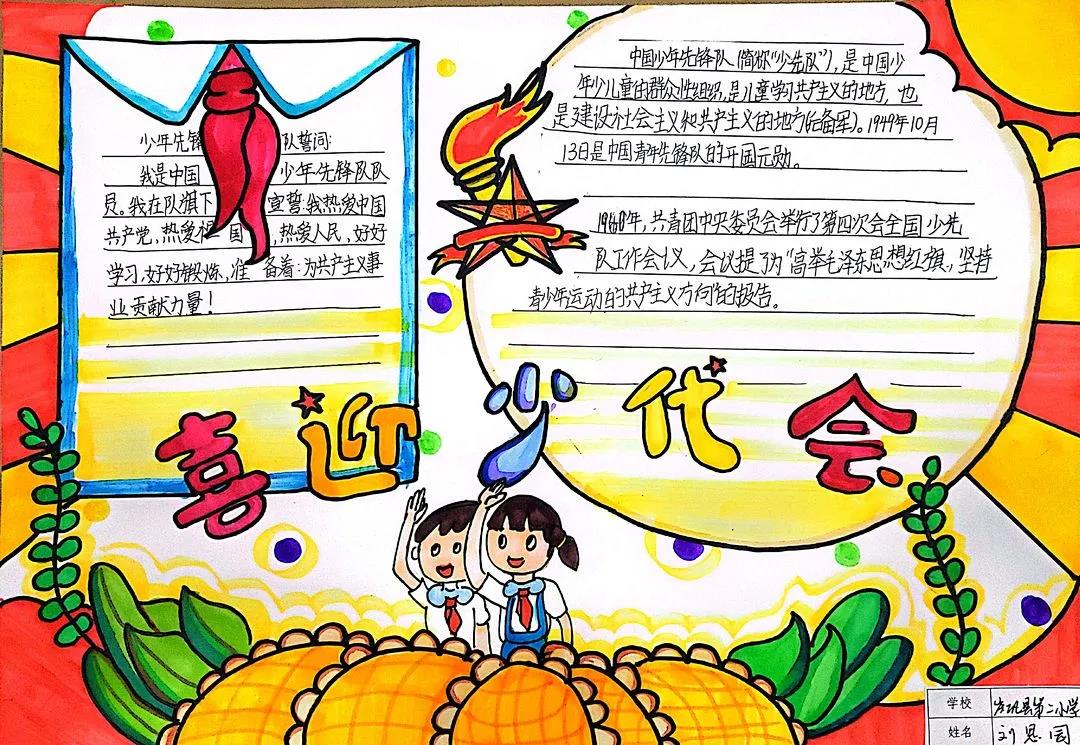 少年先锋队誓词:
我是中国少年先锋队队
员。我在队旗下宣誓:我热爱中国
共产党,热爱祖国,热爱人民,好好
学习,好好锻炼,准备着:为共产主义事
业贡献力量!
中国少年先锋队(简称“少先队”),是中国少
年少儿童的群众性组织,是儿童学习共产主义的地方,也
是建设社会主义和共产主义的地方(后备军)。1949年10月
13日是中国青年先锋队的开国元勋。
共青团中央委员会举行了第四次会全国少先
队工作会议,会议提了为“高举毛泽东思想红旗,坚持
青少年运动的共产主义方向”的报告。
喜迎少代会
学校 县第二小学
姓名 刘恩